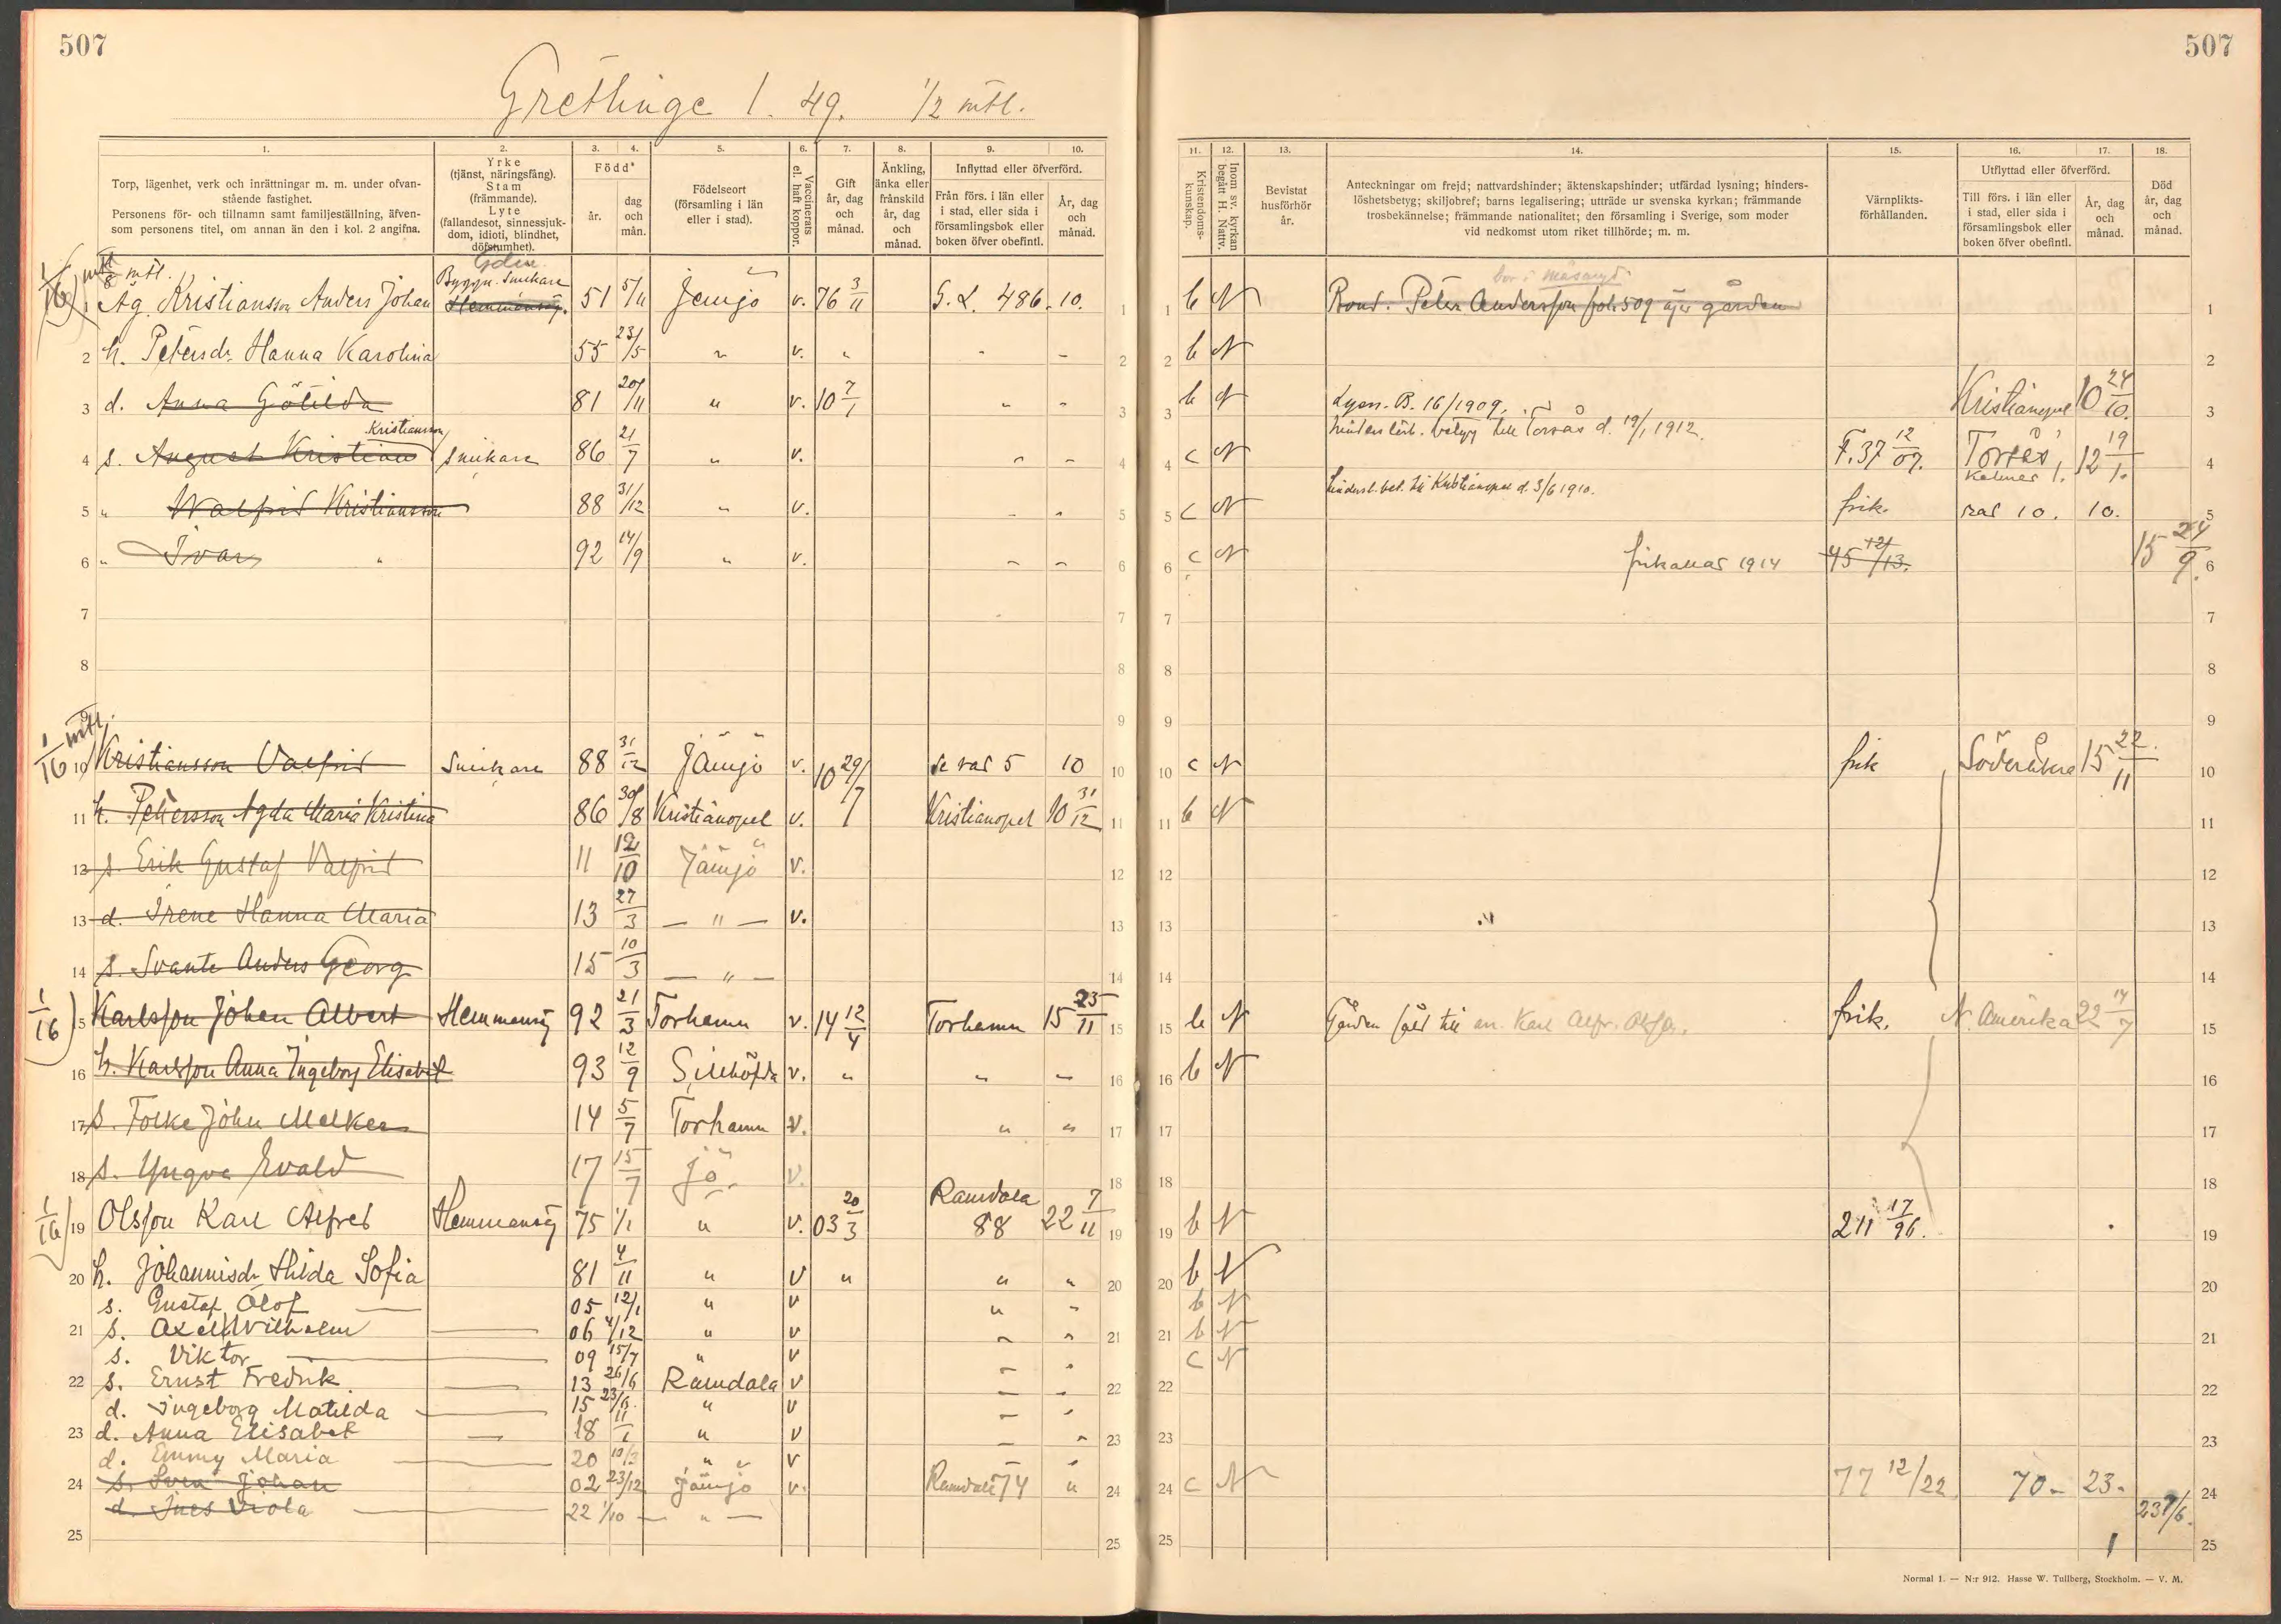 507
507
Grethinge 1. 49. 1/2 mtl.
1. 2. 3. 4. 5. 6. 7. 8. 9. 10.
Torp, lägenhet, verk och inrättningar m. m. under ofvanstående fastighet.
Personens för- och tillnamn samt familjeställning, äfvensom personens titel, om annan än den i kol. 2 angifna.
Yrke (tjänst, näringsfång). Stam (främmande). Lyte (fallandesot, sinnessjukdom, idioti, blindhet, döfstumhet).
Född*
år.
dag och mån.
Födelseort (församling i län eller i stad).
Vaccinerats el. haft koppor.
Gift år, dag och månad.
Änkling, änka eller frånskild år, dag och månad.
Inflyttad eller öfverförd.
Från förs. i län eller i stad, eller sida i församlingsbok eller boken öfver obefintl.
År, dag och månad.
11. 12. 13. 14. 15. 16. 17. 18.
Kristendomskunskap.
Inom sv. kyrkan begått H. Nattv.
Bevistat husförhör år.
Anteckningar om frejd; nattvardshinder; äktenskapshinder; utfärdad lysning; hinderslöshetsbetyg; skiljobref; barns legalisering; utträde ur svenska kyrkan; främmande trosbekännelse; främmande nationalitet; den församling i Sverige, som moder vid nedkomst utom riket tillhörde; m. m.
Värnpliktsförhållanden.
Utflyttad eller öfverförd.
Till förs. i län eller i stad, eller sida i församlingsbok eller boken öfver obefintl.
År, dag och månad.
Död år, dag och månad.
1/16 mtl 1/8 mtl.
1 Äg. Kristiansson Anders Johan Byggn. Snickare Hemmansäg. 51 5/11 Jemjö v. 76 3/11 G. L. 486. 10. b N Bond. Peter Andersson fol. 509 äger gården
2 h. Petersdr. Hanna Karolina 55 23/5 " v. " " " b N
3 d. Anna Götilda 81 20/11 " v. 10 7/1 " " b N Lysn. B. 16/1909. Kristianopel 10 24/10.
4 s. August Kristian Kristiansson Snickare 86 21/7 " v. " " c N Hinderslösh. betyg till Torsås d. 19/1 1912. F. 37 12/07. Torsås, Kalmar l. 12 19/1.
5 " Walfrid Kristiansson 88 31/12 " v. " " c N Hindersl. bet. till Kristianopel d. 3/6 1910. frik. rad 10. 10.
6 " Ivar " 92 14/9 " v. " " c N frikallad 1914 45 12/13. 15 24/9.
7
8
9
1/16 mtl.
10 Kristiansson Valfrid Snickare 88 31/12 Jämjö v. 10 29/7 se rad 5 10 c N frik Söderåkra 15 22/11
11 h. Petersson Agda Maria Kristina 86 30/8 Kristianopel v. Kristianopel 10 31/12 b N
12 s. Erik Gustaf Valfrid 11 12/10 Jämjö v.
13 d. Irene Hanna Maria 13 27/3 — " — v.
14 s. Svante Anders Georg 15 10/3 — " —
1/16
15 Karlsson Johan Albert Hemmansäg 92 21/3 Torhamn v. 14 12/4 Torhamn 15 23/11 b N Gården såld till en Karl Alfr. Olsson. frik. N. Amerika 22 14/7
16 h. Karlsson Anna Ingeborg Elisabet 93 12/9 Sillhöfda v. " " " b N
17 s. Folke John Melker 14 5/7 Torhamn v. " "
18 s. Yngve Evald 17 15/7 Jö. v.
1/16
19 Olsson Karl Alfred Hemmansäg 75 1/1 " v. 03 20/3 Ramdala 88 22 7/11 b N 211 17/96.
20 h. Johannisdr. Hilda Sofia 81 4/11 " v " " " b N
s. Gustaf Olof 05 12/1 " v " " b N
21 s. Axel Wilhelm 06 4/12 " v " " b N
s. Viktor 09 15/7 " v " " c N
22 s. Ernst Fredrik 13 26/6 Ramdala v " "
d. Ingeborg Matilda 15 23/6. " v " "
23 d. Anna Elisabet 18 11/1 " v " "
d. Emmy Maria 20 10/3 " v " "
24 s. Sven Johan 02 23/12 Jämjö v. Ramdala 74 " c N 77 12/22 70. 23.
d. Ines Viola 22 1/10 — " — 23 7/6.
25
Normal 1. — N:r 912. Hasse W. Tullberg, Stockholm. — V. M.